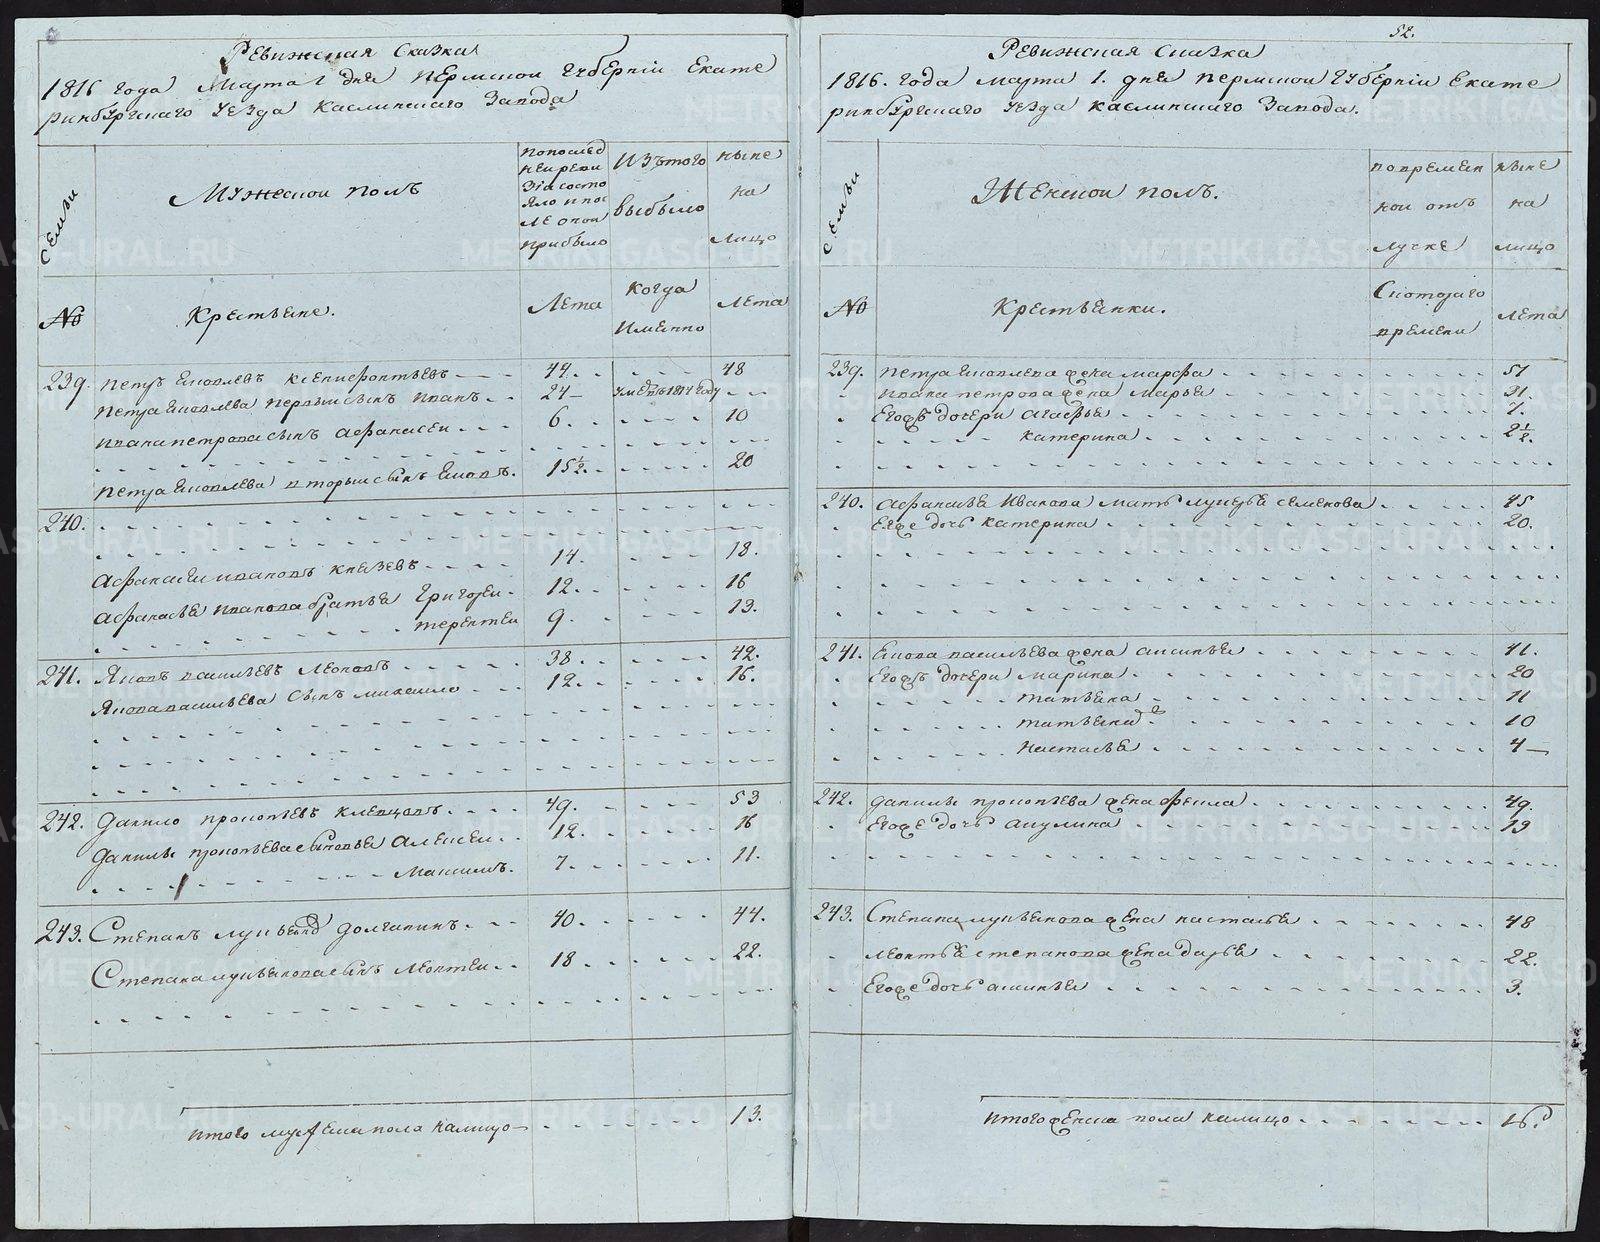 Ревижская Сказка
1816 года Марта 1 дня Пермской губернїи Екате
ринбургскаго уезда Каслинскаго Завода
Семьи
Мужескои полъ
Попослед
неи реви
зiи состо
яло и пос
ле онои
прибыло
Изътого
выбыло
ныне
на
лицо
№
Крестьяне.
Лета
когда
имянно
Лета
239. Петръ Яковлевъ Ксенофонтьевъ 44. 48
Петра Яковлева первыи сынъ Иванъ 24 умеръ 1814 году
Ивана Петрова сынъ Афанасеи 6. 10
Петра Яковлева вторыи сынъ Яковъ. 15½. 20
240.
Афанасеи Ивановъ Князевъ 14. 18.
Афанасья Иванова братья Григореи 12. 16
терентеи 9. 13.
241. Яковъ васильевъ Леоновъ 38. 42.
Якова васильева Сынъ михаило 12. 16.
242. Данило прокопьевъ Клепцовъ 49. 53
Данилы прокопьева сыновья Алексеи 12. 16
Максимъ. 7. 11.
243. Степанъ Лукьяновъ Долганинъ 40. 44.
Степана Лукьянова сынъ Леонтеи 18. 22.
итого мужеска пола налицо 13.
52.
Ревижская Сказка
1816. года марта 1. дня пермскои губернїи Екате
ринбургскаго уезда каслинскаго Завода.
Семьи
Женскои полъ.
во времен
нои отъ
лучке
ныне
на
лицо
№
Крестьянки.
Скотораго
времени
лета
239. Петра Яковлева жена марфа 51
Ивана петрова жена Марья 31.
Егожъ дочери агафья 7.
катерина 2½.
240. Афанасья Иванова мать лукерья семенова 45
Еяже дочь катерина 20.
241. Якова васильева жена аксинья 41.
Егожъ дочери марина 20
татьяна 11
татьянаже 10
настасья 4
242. Данилы прокопьева жена фекла 49.
Егоже дочь акулина 19
243. Степана лукьянова жена настасья 48
Леонтья степанова жена дарья 22.
Егоже дочь аксинья 3.
итого женска пола налицо 16.
METRIKI.GASO-URAL.RU